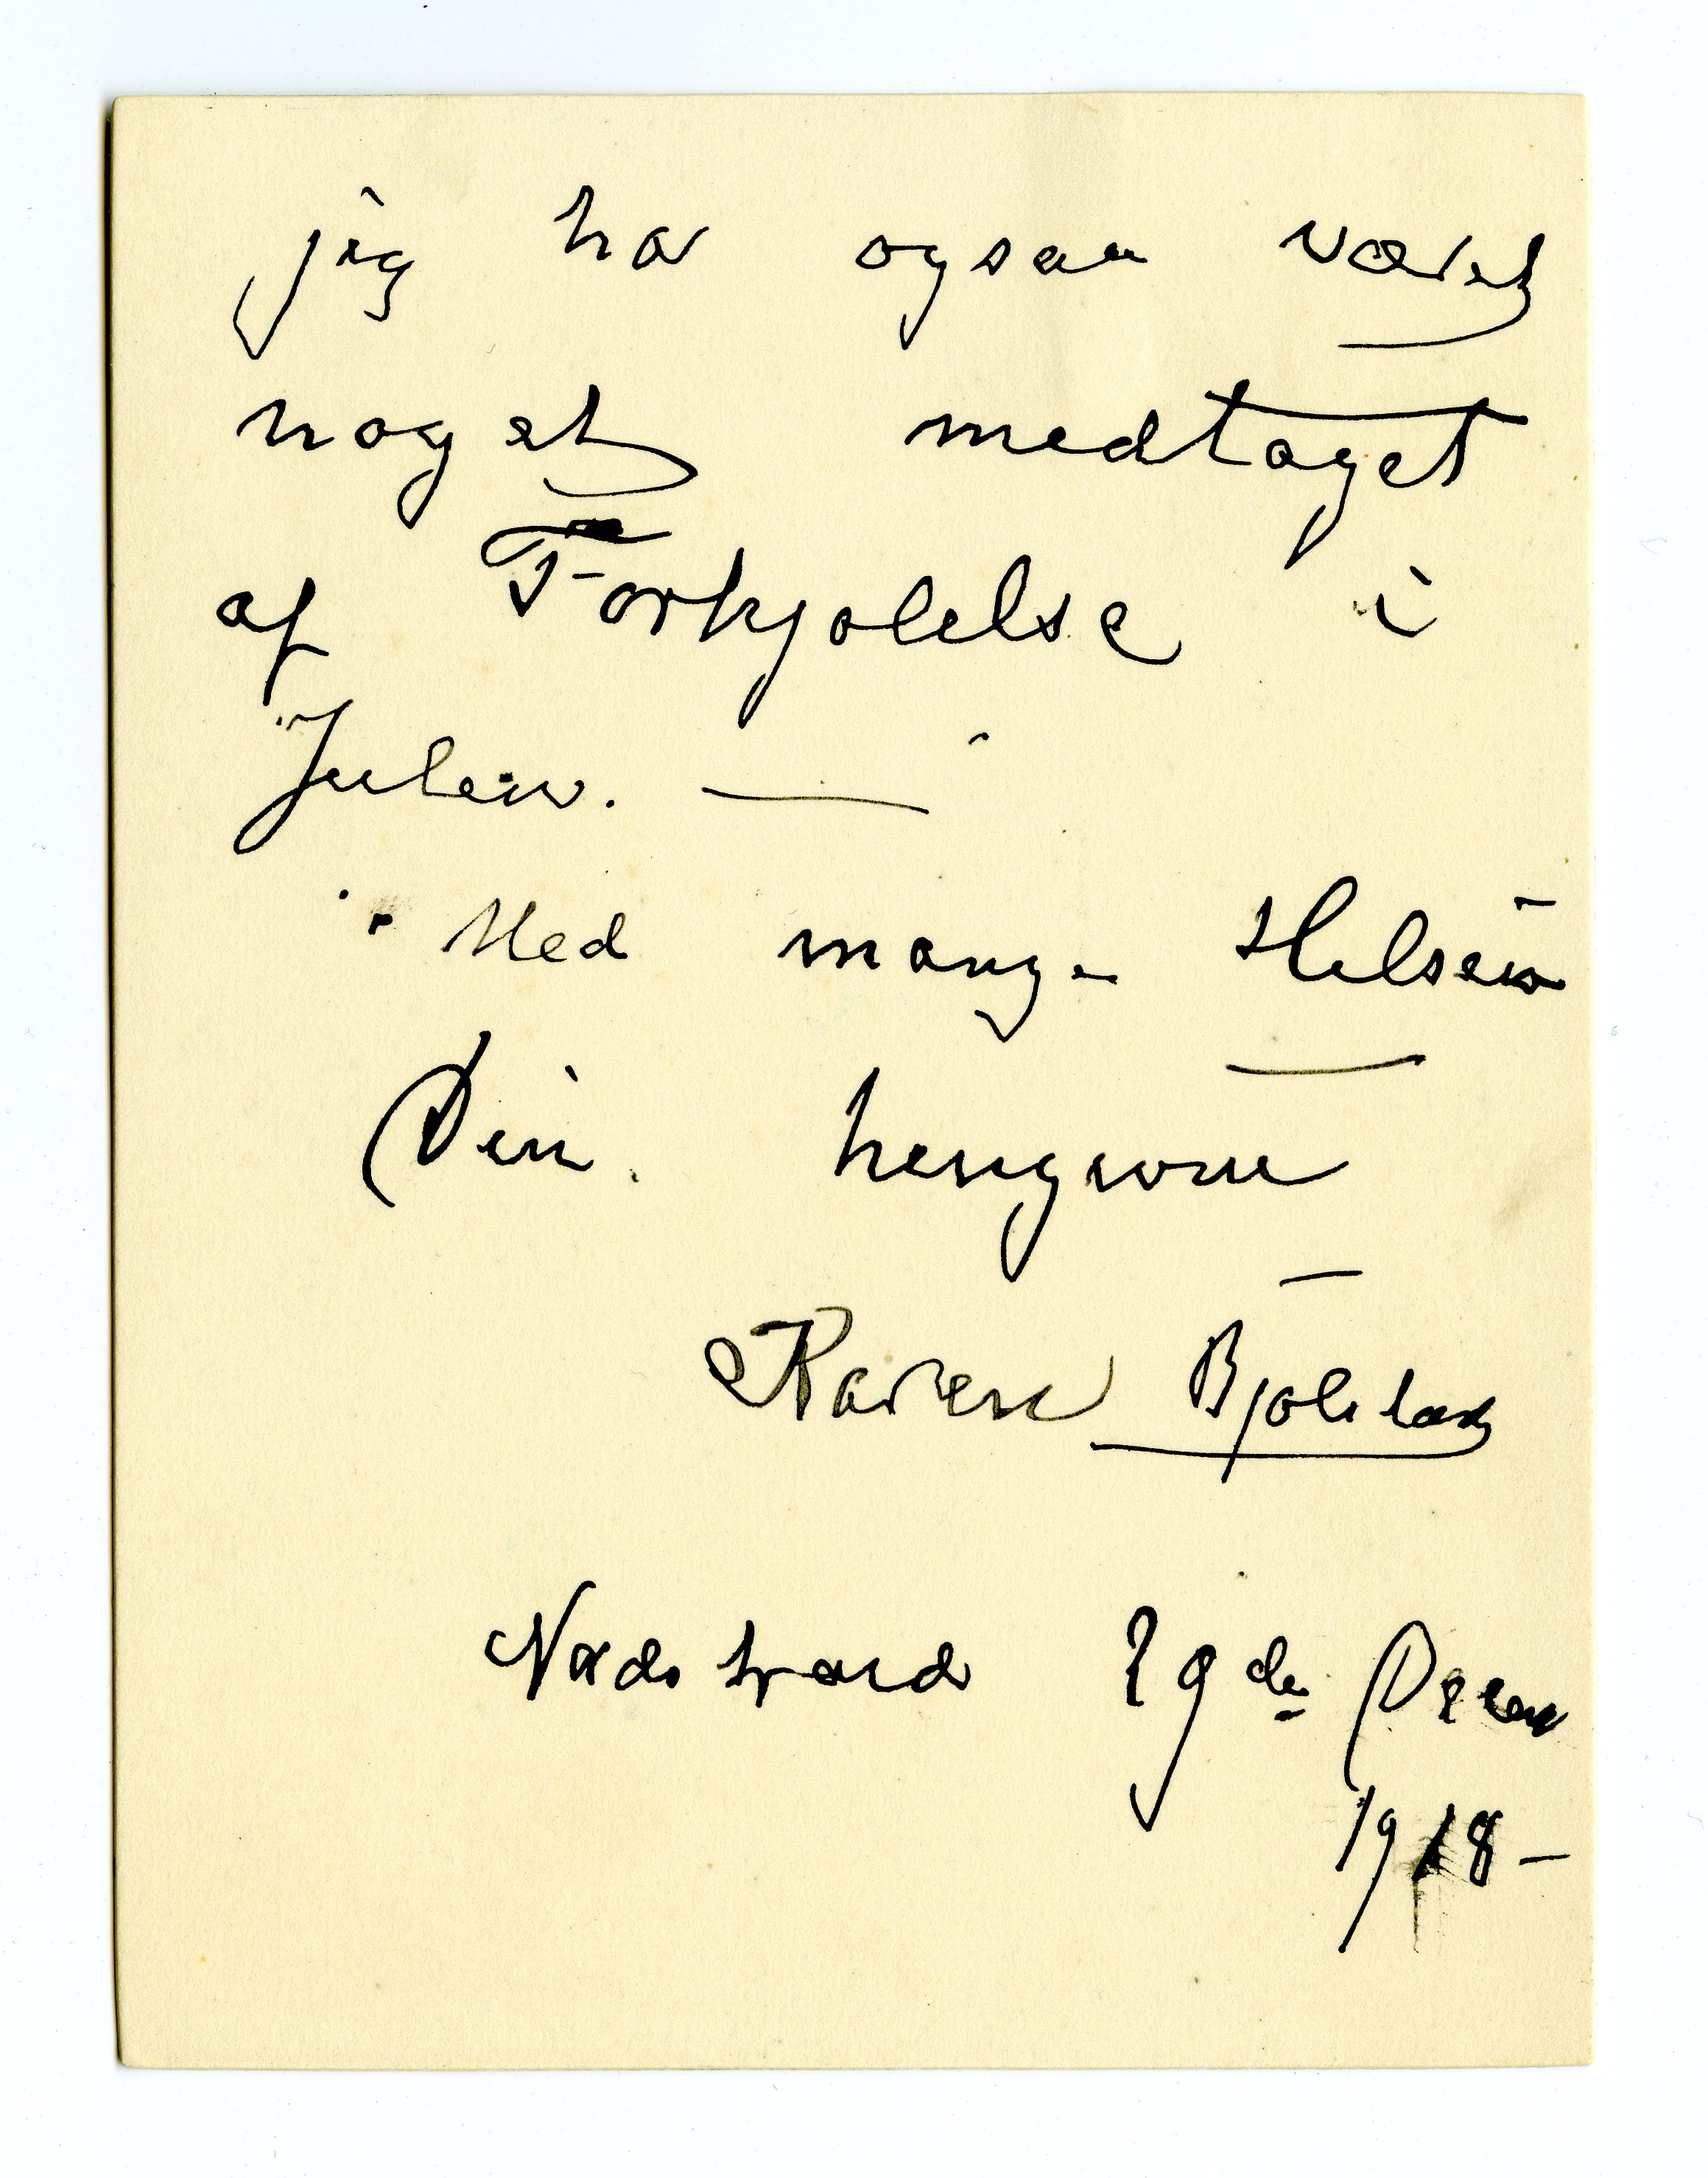 jeg har ogsaa været
noget medtaget
af Forkjølelse i
Julen. —
Med mange Helsen
Din hengivne
Karen Bjølstad
Nordstrand 29de Decem
1918 –